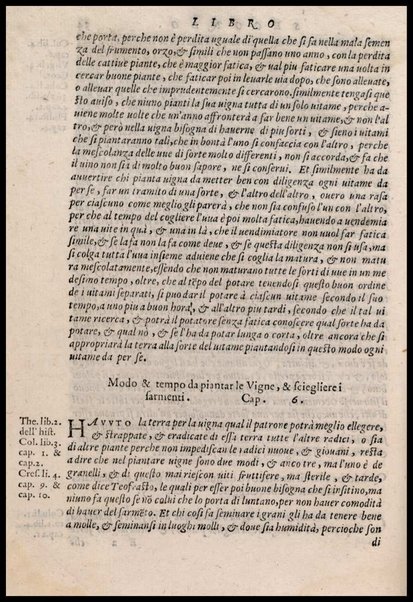 LIBRO
che porta, perche non è perdita uguale di quella che si fa nella mala semen
za del frumento, orzo, & simili che non passano uno anno, con la perdita
delle cattiue piante, che è maggior fatica, & ual piu faticare una uolta in
cercar buone piante, che faticar poi in leuarle uia dopo, che sono alleuate,
o alleuar quelle che imprudentemente si cercarono. similmente tengasi que
sto auiso, che niuno pianti la sua uigna tutta di un solo uitame, perche a-
uiene molte uolte che un'anno affronterà a far bene un uitame, & non l'al
tro, & però nella uigna bisogna di hauerne di piu sorti, & sieno i uitami
che si piantaranno tali, che in bontà l'uno si confaccia con l'altro, perche
la mescolanza delle uue di sorte molto differenti, non si accorda, & fa che
il uino non sia di molto buon sapore, ne si conserui. Et similmente ha da
auuertire chi pianta uigna da metter ben con diligenza ogni uitame da
per se, far un tramito di una sorte, & l'altro dell'altro, ouero una rasa
per ciascuno come meglio gli parerà, che non sia confuso l'un con l'altro,
per che al tempo del cogliere l'uua è poi molta fatica, hauendo a uendemia
re una uite in quà, & una in là, che il uendimiatore non uuol far fatica
simile, & se la fa non la fa come deue, & se questa diligenza non si usa, ma
si colga tutta l'uua insieme aduiene che si coglia la matura, & non matu
ra mescolatamente, essendo che non maturano tutte le sorti di uue in un me
desimo tempo, oltre, che al tẽpo del potare tenendosi questo buon ordine
de i uitami separati, si puo dar il potare à ciascun uitame secondo il suo
tempo, a uno piu a buon hora, & all'altro piu tardi, secondo che il tal ui
tame ricerca, & potrà il potatore senza fatica conoscere qual sorte ha da
potare, & qual nò, & se l'ha da potar lunga o corta, oltre ancora che si
appropriarà la terra alla sorte del uitame piantandosi in questo modo ogni
uitame da per se.
Modo & tempo da piantar le Vigne, & sciegliere i
sarmenti. Cap. 6.
The. lib. 2.
dell'hist.
Col. lib. 3.
cap. 1. &
cap. 2.
Cres. li. 4.
cap. 9. &
cap. 10.
HAVVTO la terra per la uigna qual il patrone potrà meglio ellegere,
& strappate, & eradicate di essa terra tutte l'altre radici, o sia
di altre piante perche non impediscan le radici nuoue, & giouani, resta
a dire che nel piantar uigne sono due modi, & anco tre, ma l'uno è de
granelli, & di questo mai riescon uiti fruttifere, ma sterile, & tarde,
come dice Teofrasto, le quali per esser poi buone bisogna che si insitino, ma
niuno fa questo se nõ colui che lo porta di luntano, per non hauer comodità
di hauer del sarmẽto. Et chi cosi fa seminare i grani gli ha tenere bene
a molle, & seminansi in luoghi molli, & doue sia humidità, percioche son
di